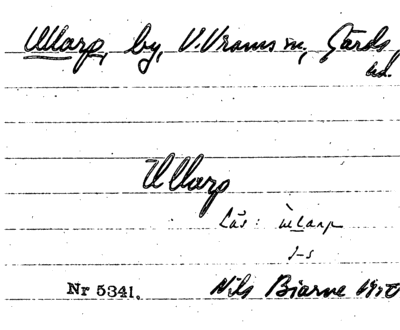 Ullarp, by, V. Vrams sn, Gärds
hd.
Ullarp
Läs: ùlarp
J-s
Nr 5341.
Nils Bjarne 1920